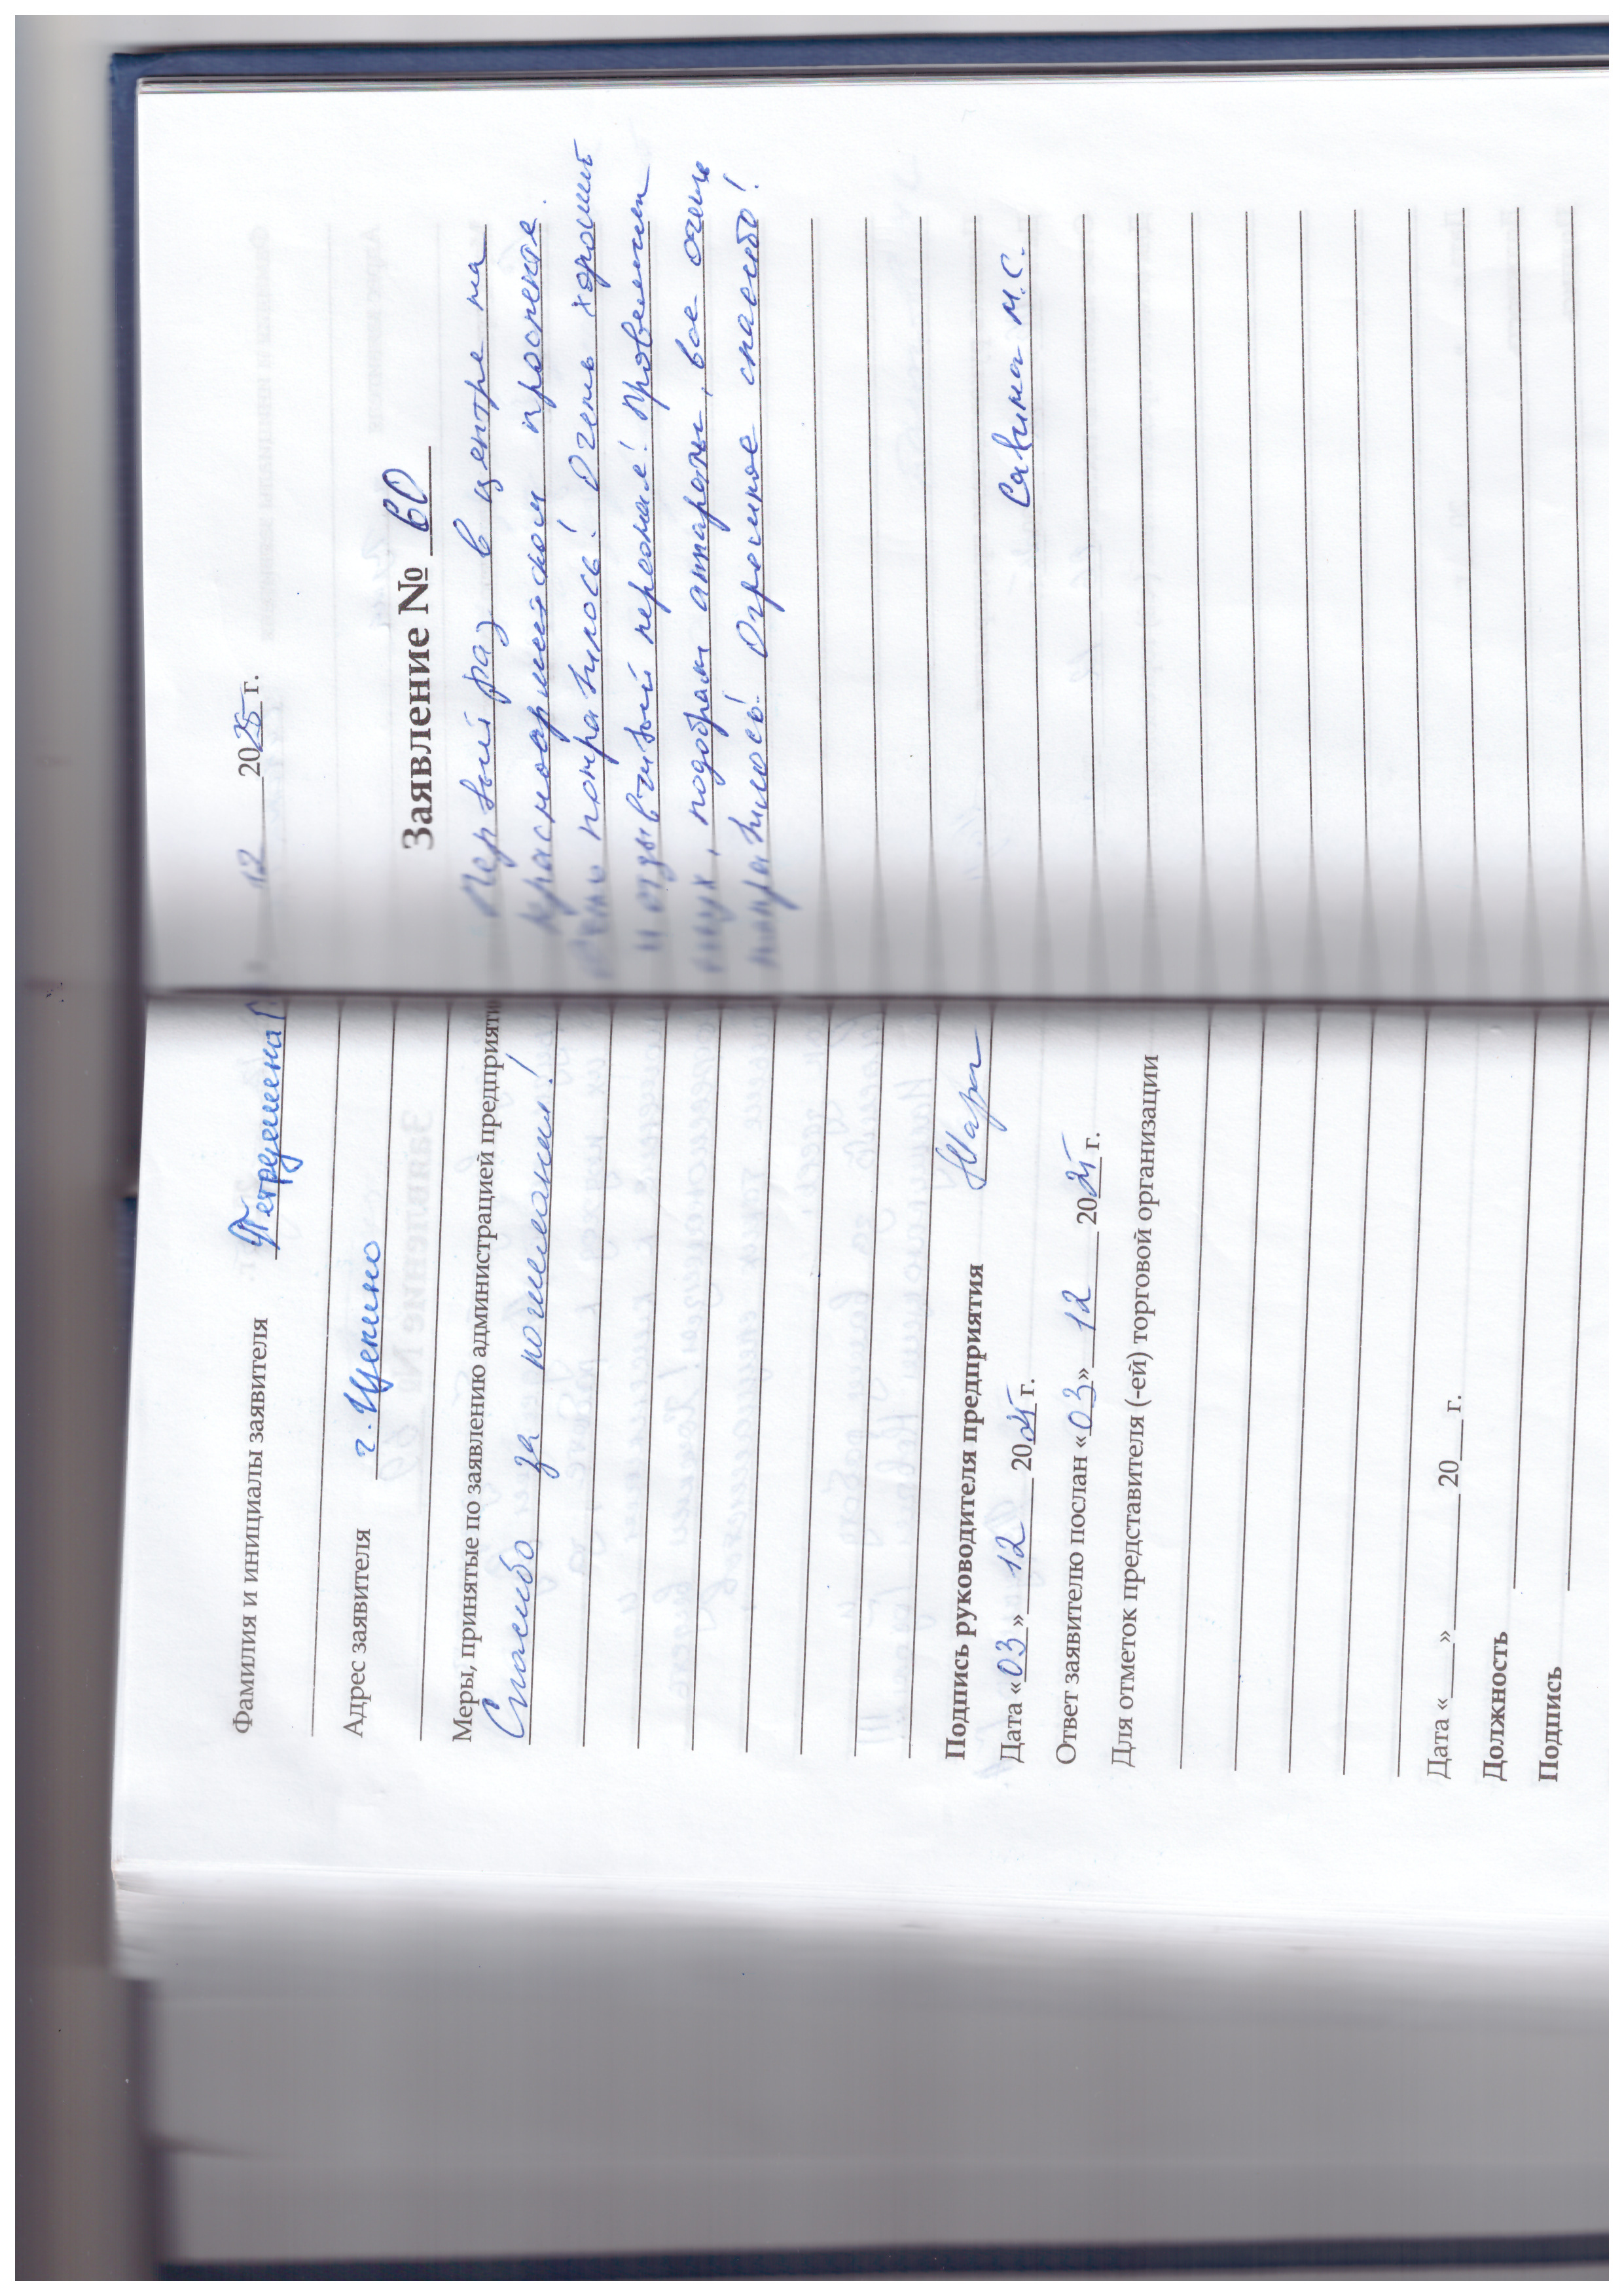 Фамилия и инициалы заявителя Петрушина Г
Адрес заявителя г. Щекино
Меры, принятые по заявлению администрацией предприяти
Спасибо за пожелания!
Подпись руководителя предприятия
Дата «03» 12 2025 г.
Ответ заявителю послан «03» 12 2025 г.
Для отметок представителя (-ей) торговой организации
Дата «___»________ 20___г.
Должность
Подпись
12 2025 г.
Заявление № 60
Первый раз в центре на
Красноармейском проспекте.
понравилось! Очень хороший
и отзывчивый персонал! Проверили
слух, подобрали аппараты, все очень
понравилось! Огромное спасибо!
Савина М.С.